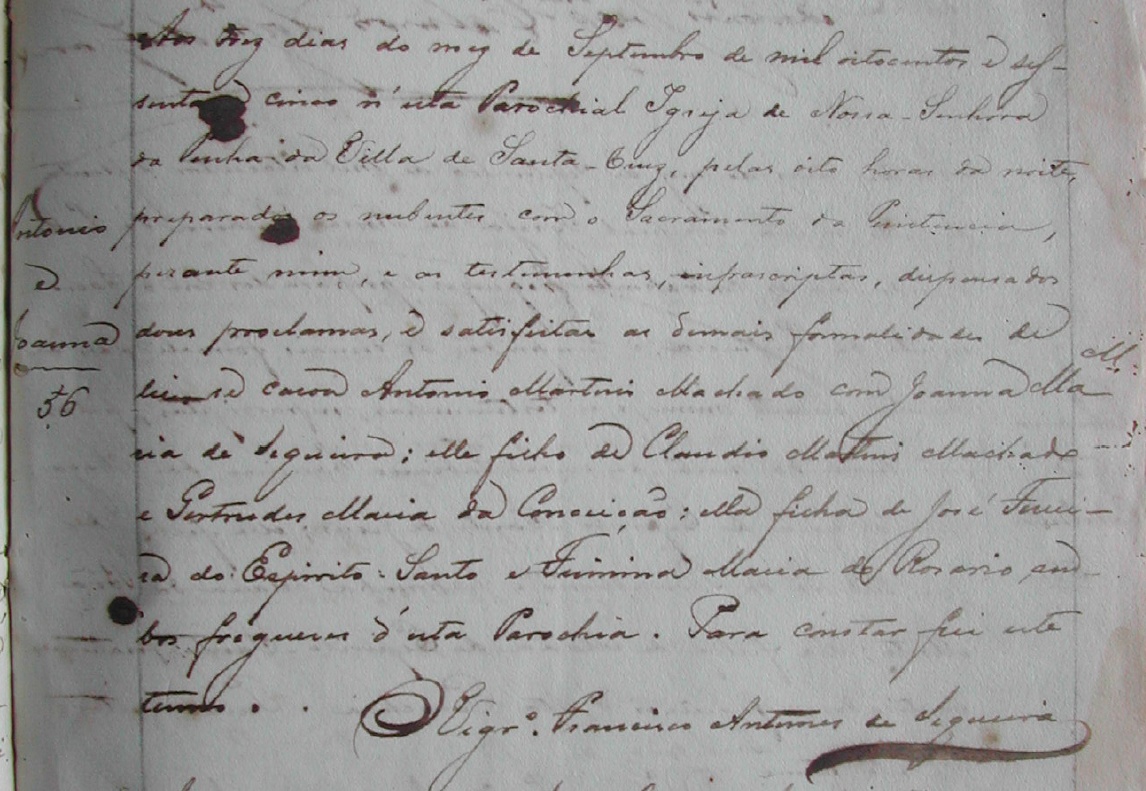 Aos trez dias do mez de Septembro de mil oitocentos e ses-
senta e cinco n'esta Parochial Igreja de Nossa Senhora
da Penha da Villa de Santa-Cruz, pelas oito horas da noite,
preparados os nubentes com o Sacramento da Penitencia,
perante mim, e as testemunhas, infrascriptas, dispensados
dous proclamas, e satisfeitas as demais formalidades de
se casou Antonio Martins Machado com Joanna Ma
ria de Sequeira; elle filho de Claudio Martins Machado
e Gertrudes Maria da Conceição; ella filha de José Ferrei-
ra do Espirito-Santo e Firmina Maria do Rosario, am-
bos freguezes d'esta Parochia. Para constar fiz este
termo.
Vigr.º Francisco Antunes de Sequeira
ntonio
e
oanna
56